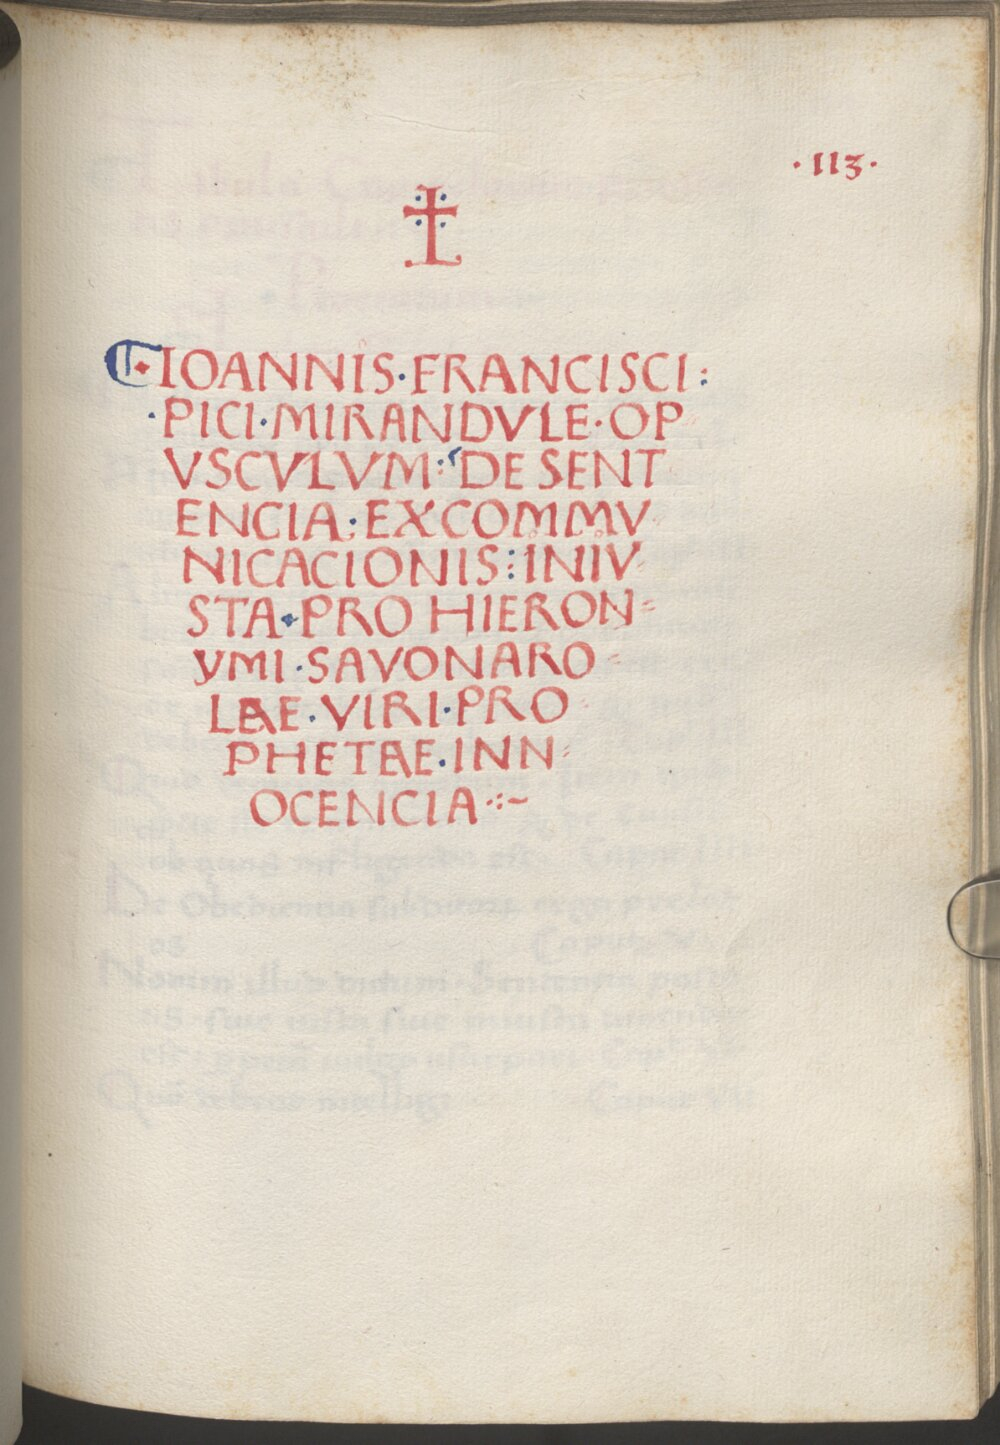 ·113·
IOANNIS·FRANCISCI:
·PICI·MIRANDVLE·OP
VSCVLVM:DE SENT
ENCIA:EXCOMMV
NICACIONIS:INIV
STA·PRO HIERON=
YMI·SAVONARO
LAE·VIRI·PRO
PHETAE·INN=
OCENCIA:~